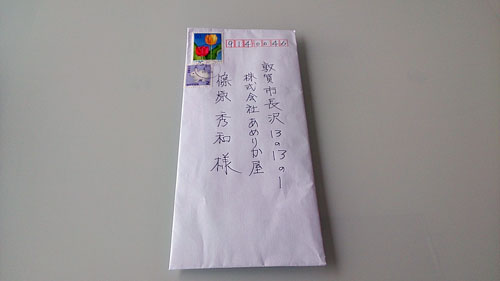 914-0046
敦賀市長沢13の13の1
株式会社あめりか屋
篠原秀和様